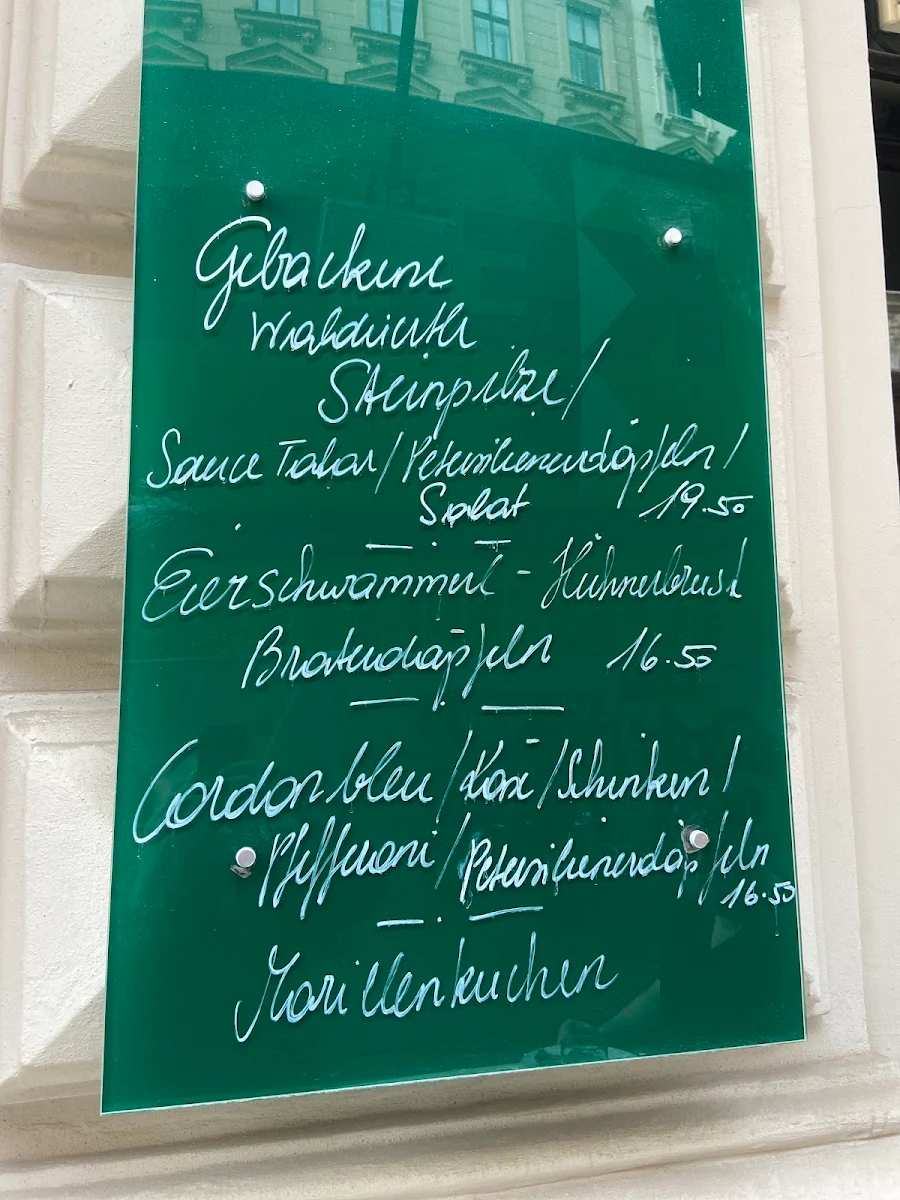 Gebackene
Waldviertler
Steinpilze/
Sauce Tatar/Petersilienerdäpfeln/
Salat 19.50
Eierschwammerl - Hühnerbrust
Braterdäpfeln 16.50
Cordon bleu/Käse/Schinken/
Pfefferoni/Petersilienerdäpfeln
16.50
Marillenkuchen